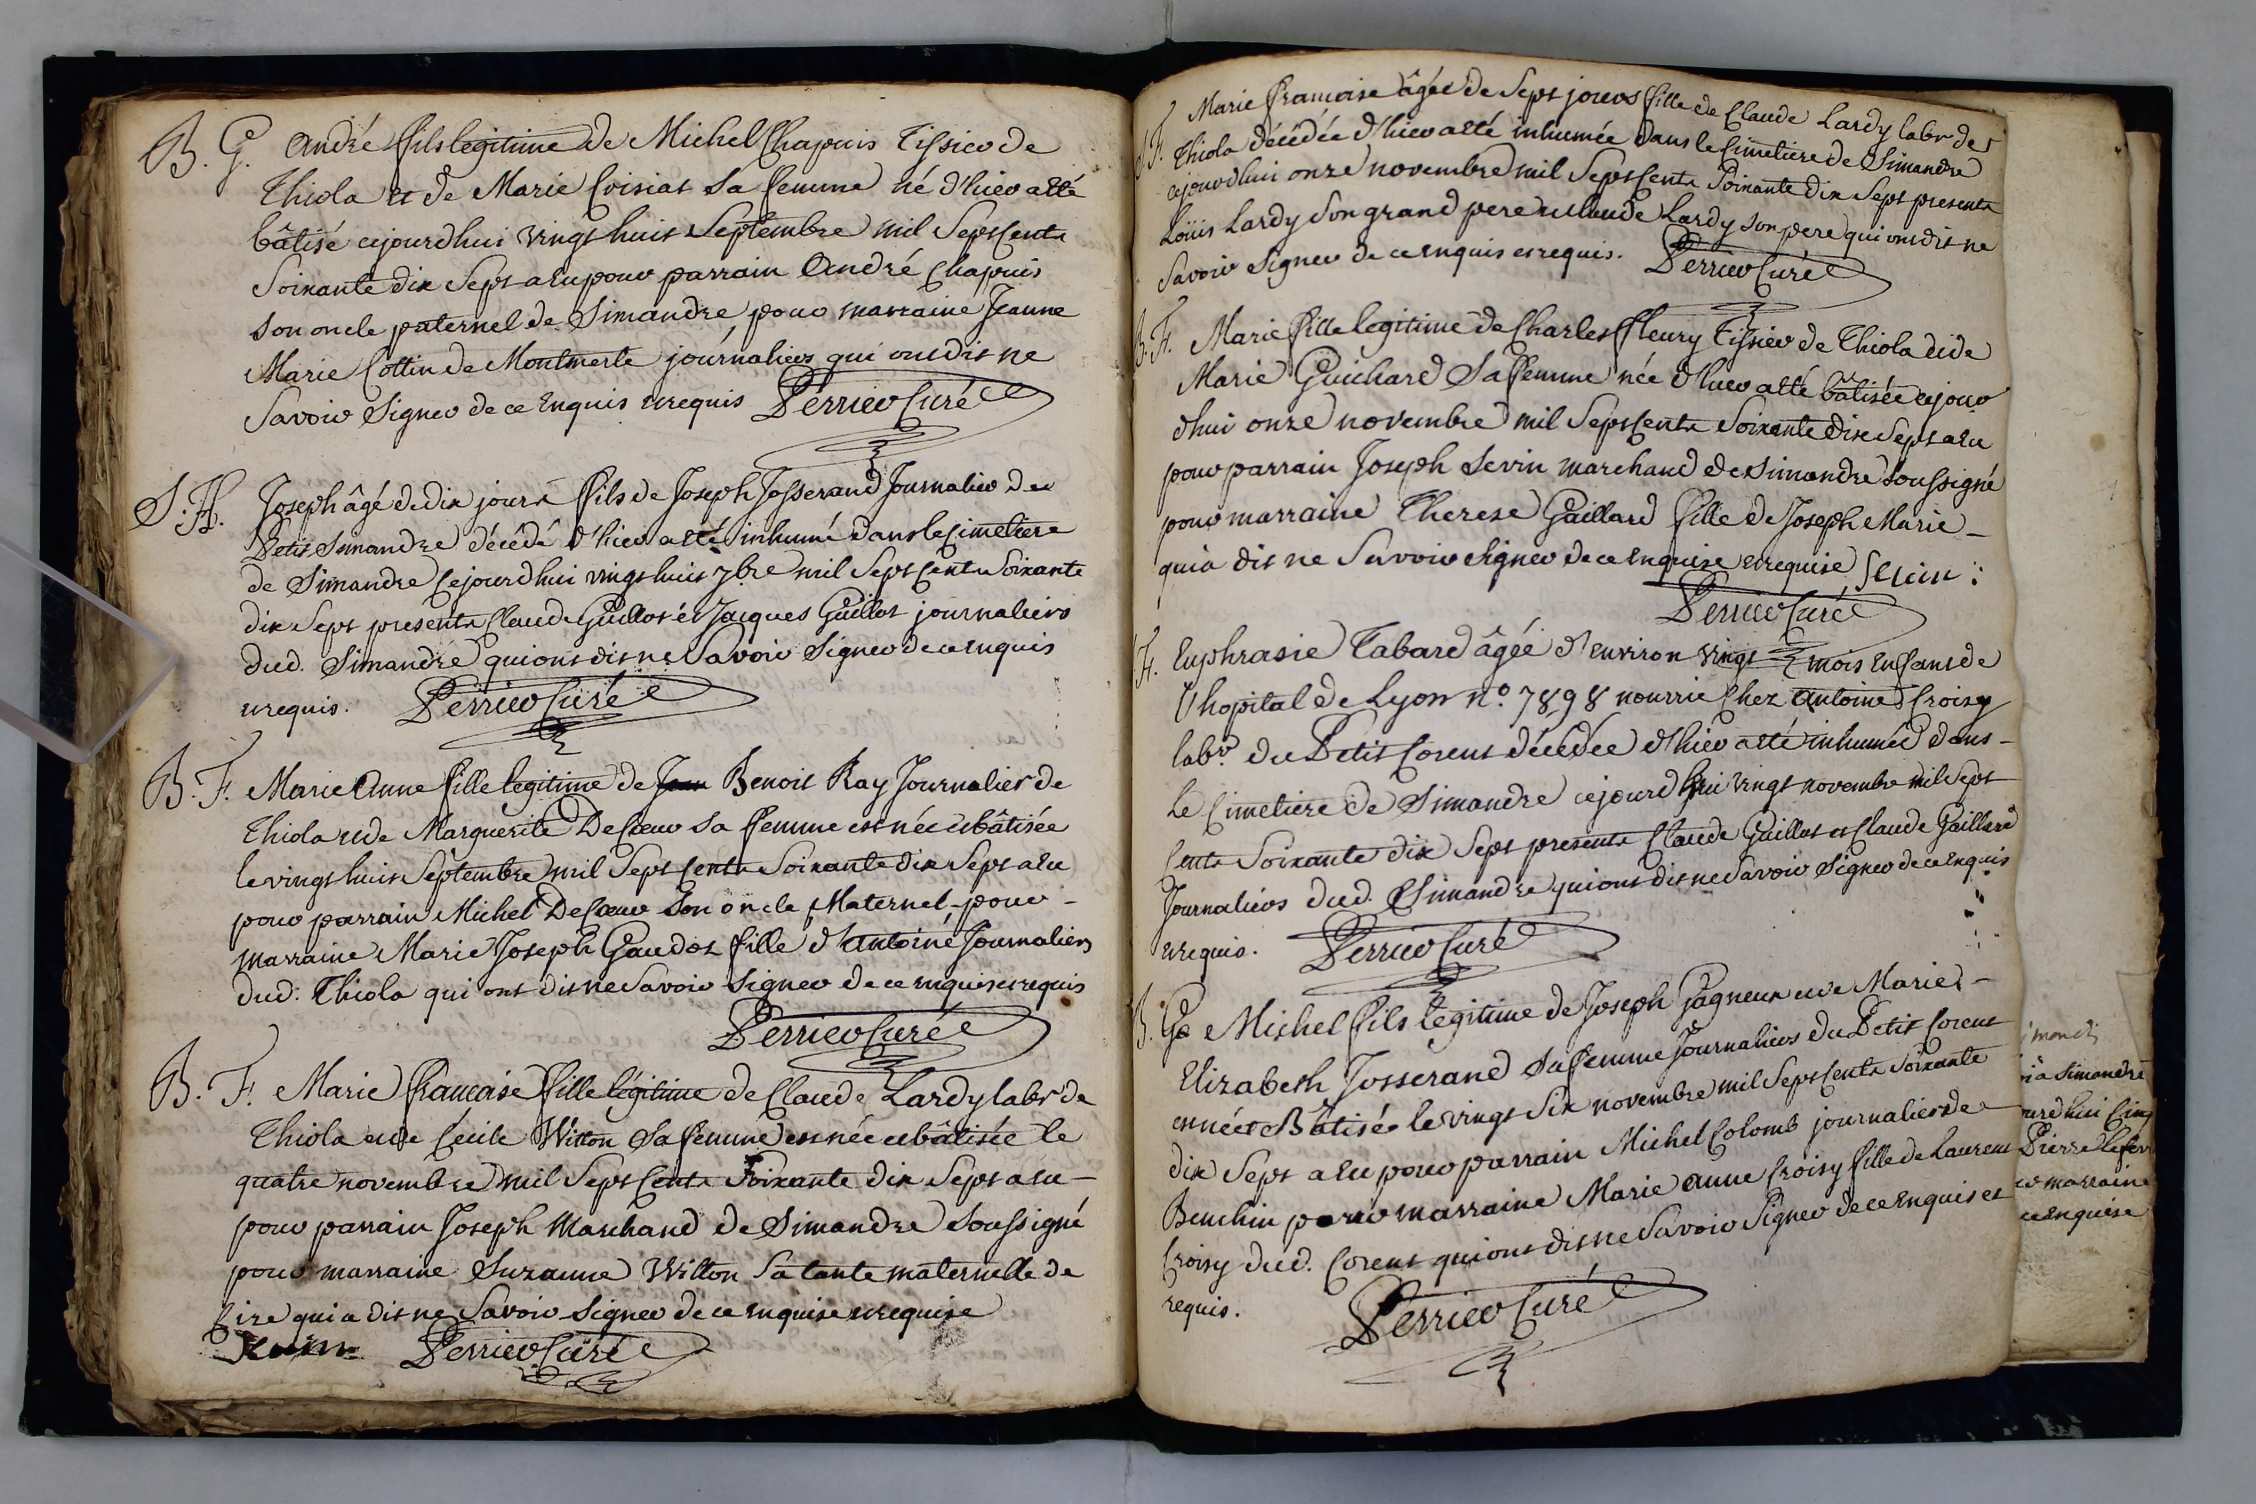 B. G. André fils legitime de Michel Chapuis Tissier de
Thiola et de Marie Coisiat sa femme né d'hier a eté
bâtisé cejourdhui vingt huit Septembre mil Sept Cents
Soixante dix Sept a eu pour parrain André Chapuis
son oncle paternel de Simandre pour marraine Jeanne
Marie Cottin de Montmerle journaliers qui ont dit ne
Savoir Signer de ce Enquis et requis Perrier Curé
S. H. Joseph âgé de dix jours fils de Joseph Josserand Journalier de
Petit Simandre décédé d'hier a eté inhumé dans le Cimetiere
de Simandre Cejourdhui vingt huit 7bre mil Sept Cents Soixante
dix Sept presents Claude Guillot et Jacques Guillot journaliers
dud. Simandre qui ont dit ne Savoir Signer de ce Enquis
et requis. Perrier Curé
B. F. Marie Anne fille legitime de Jean Benoit Ray Journalier de
Thiola et de Marguerite DeCœur sa femme est née et bâtisée
le vingt huit Septembre mil Sept Cents Soixante dix Sept a eu
pour parrain Michel DeCœur Son oncle Maternel pour -
marraine Marie Joseph Gaudet fille d'antoine Journaliers
dud. Thiola qui ont dit ne Savoir Signer de ce enquis et requis
Perrier Curé
B. F. Marie francoise fille légitime de Claude Lardy labr de
Thiola et de Cécile Witton Sa femme est née et bâtisée le
quatre novembre mil Sept Cents Soixante dix Sept a eu -
pour parrain Joseph Marchand de Simandre Soussigné
pour marraine Suzanne Witton Sa tante maternelle de
qui a dit ne Savoir Signer de ce enquise et requise
Perrier Curé
S. F. Marie francoise âgée de Sept jours fille de Claude Lardy labr de
Thiola décédée d'hier a eté inhumée dans le Cimetiere de Simandre
cejourdhui onze novembre mil Sept Cents Soixante dix Sept presents
Loüis Lardy Son grand pere et Claude Lardy son pere qui ont dit ne
Savoir Signer de ce enquis et requis. Perrier Curé
B. F. Marie fille legitime de Charles fleury Tissier de Thiola et de
Marie Guichard Sa femme née d'hier a eté bâtisée cejour
dhui onze novembre mil Sept Cents Soixante dix Sept a eu
pour parrain Joseph Sevin marchand de Simandre Soussigné
pour marraine Therese Gaillard fille de Joseph Marie -
qui a dit ne Savoir Signer de ce enquise et requise Sevin
Perrier Curé
F. Euphrasie Tabard âgée d'environ vingt mois Enfant de
l'hopital de Lyon n.o 7898 nourrie Chez antoine Croisy
labr. du Petit Corent décédée d'hier a eté inhumée dans -
Le Cimetiere de Simandre cejourdhui vingt novembre mil Sept
Cents Soixante dix Sept presents Claude Guillot et Claude Gaillard
Journaliers dud. Simandre qui ont dit ne Savoir Signer de ce Enquis
et requis. Perrier Curé
B. G. Michel fils legitime de Joseph Gagneux et de Marie -
Elizabeth Josserand Sa femme Journaliers du Petit Corent
est né et Bâtisée le vingt Six novembre mil Sept Cents Soixante
dix Sept a eu pour parrain Michel Colomb journalier de
pour marraine Marie anne Croisy fille de Laurent
Croisy dud. Corent qui ont dit ne Savoir Signer de ce enquis et
requis. Perrier Curé
à Simandre
Pierre
marraine
enquise